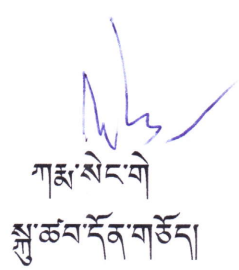 ཀརྨ་སེང་གེ
སྐུ་ཚབ་དོན་གཅོད།